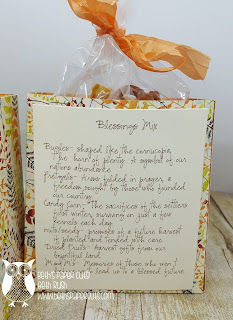 Blessings Mix
Bugles- shaped like the cornucopia,
The horn of plenty. A symbol of our
nations abundance.
Pretzels- Arms folded in prayer, a
freedom sought by those who founded
our country.
Candy Corn- The sacrifices of the settlers
first winter, surviving on just a few
kernels each day.
nuts/seeds- promise of a future harvest
if planted and tended with care.
Dried Fruits- harvest gifts from our
bountiful land.
M and M's- Memories of those who
lead us to a blessed future.
Beth's Paper Cuts
Beth Rush
www.bethspapercuts.com